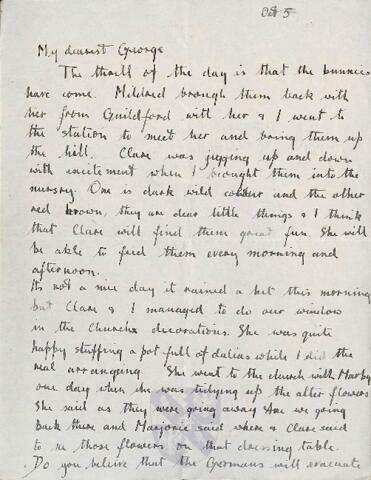 Oct 5
My dearest George
The thrill of the day is that the bunnies
have come. Mildred brough them back with
her from Guildford with her & I went to
the station to meet her and bring them up
the hill. Clare was jigging up and down
with excitement when I brought them into the
nursery. One is dark wild colour and the other
red brown, they are dear little things & I think
that Clare will find them great fun. She will
be able to feed them every morning and
afternoon.
Its not a nice day it rained a bit this morning
but Clare & I managed to do our window
in the Church decorations. She was quite
happy stuffing a pot full of dalias while I did the
real arranging. She went to the church with Marby
one day when she was tidying up the alter flowers
She said as they were going away Are we going
back there and Marjorie said where & Clare said
to those flowers on that dressing table.
Do you believe that the Germans will evacuate